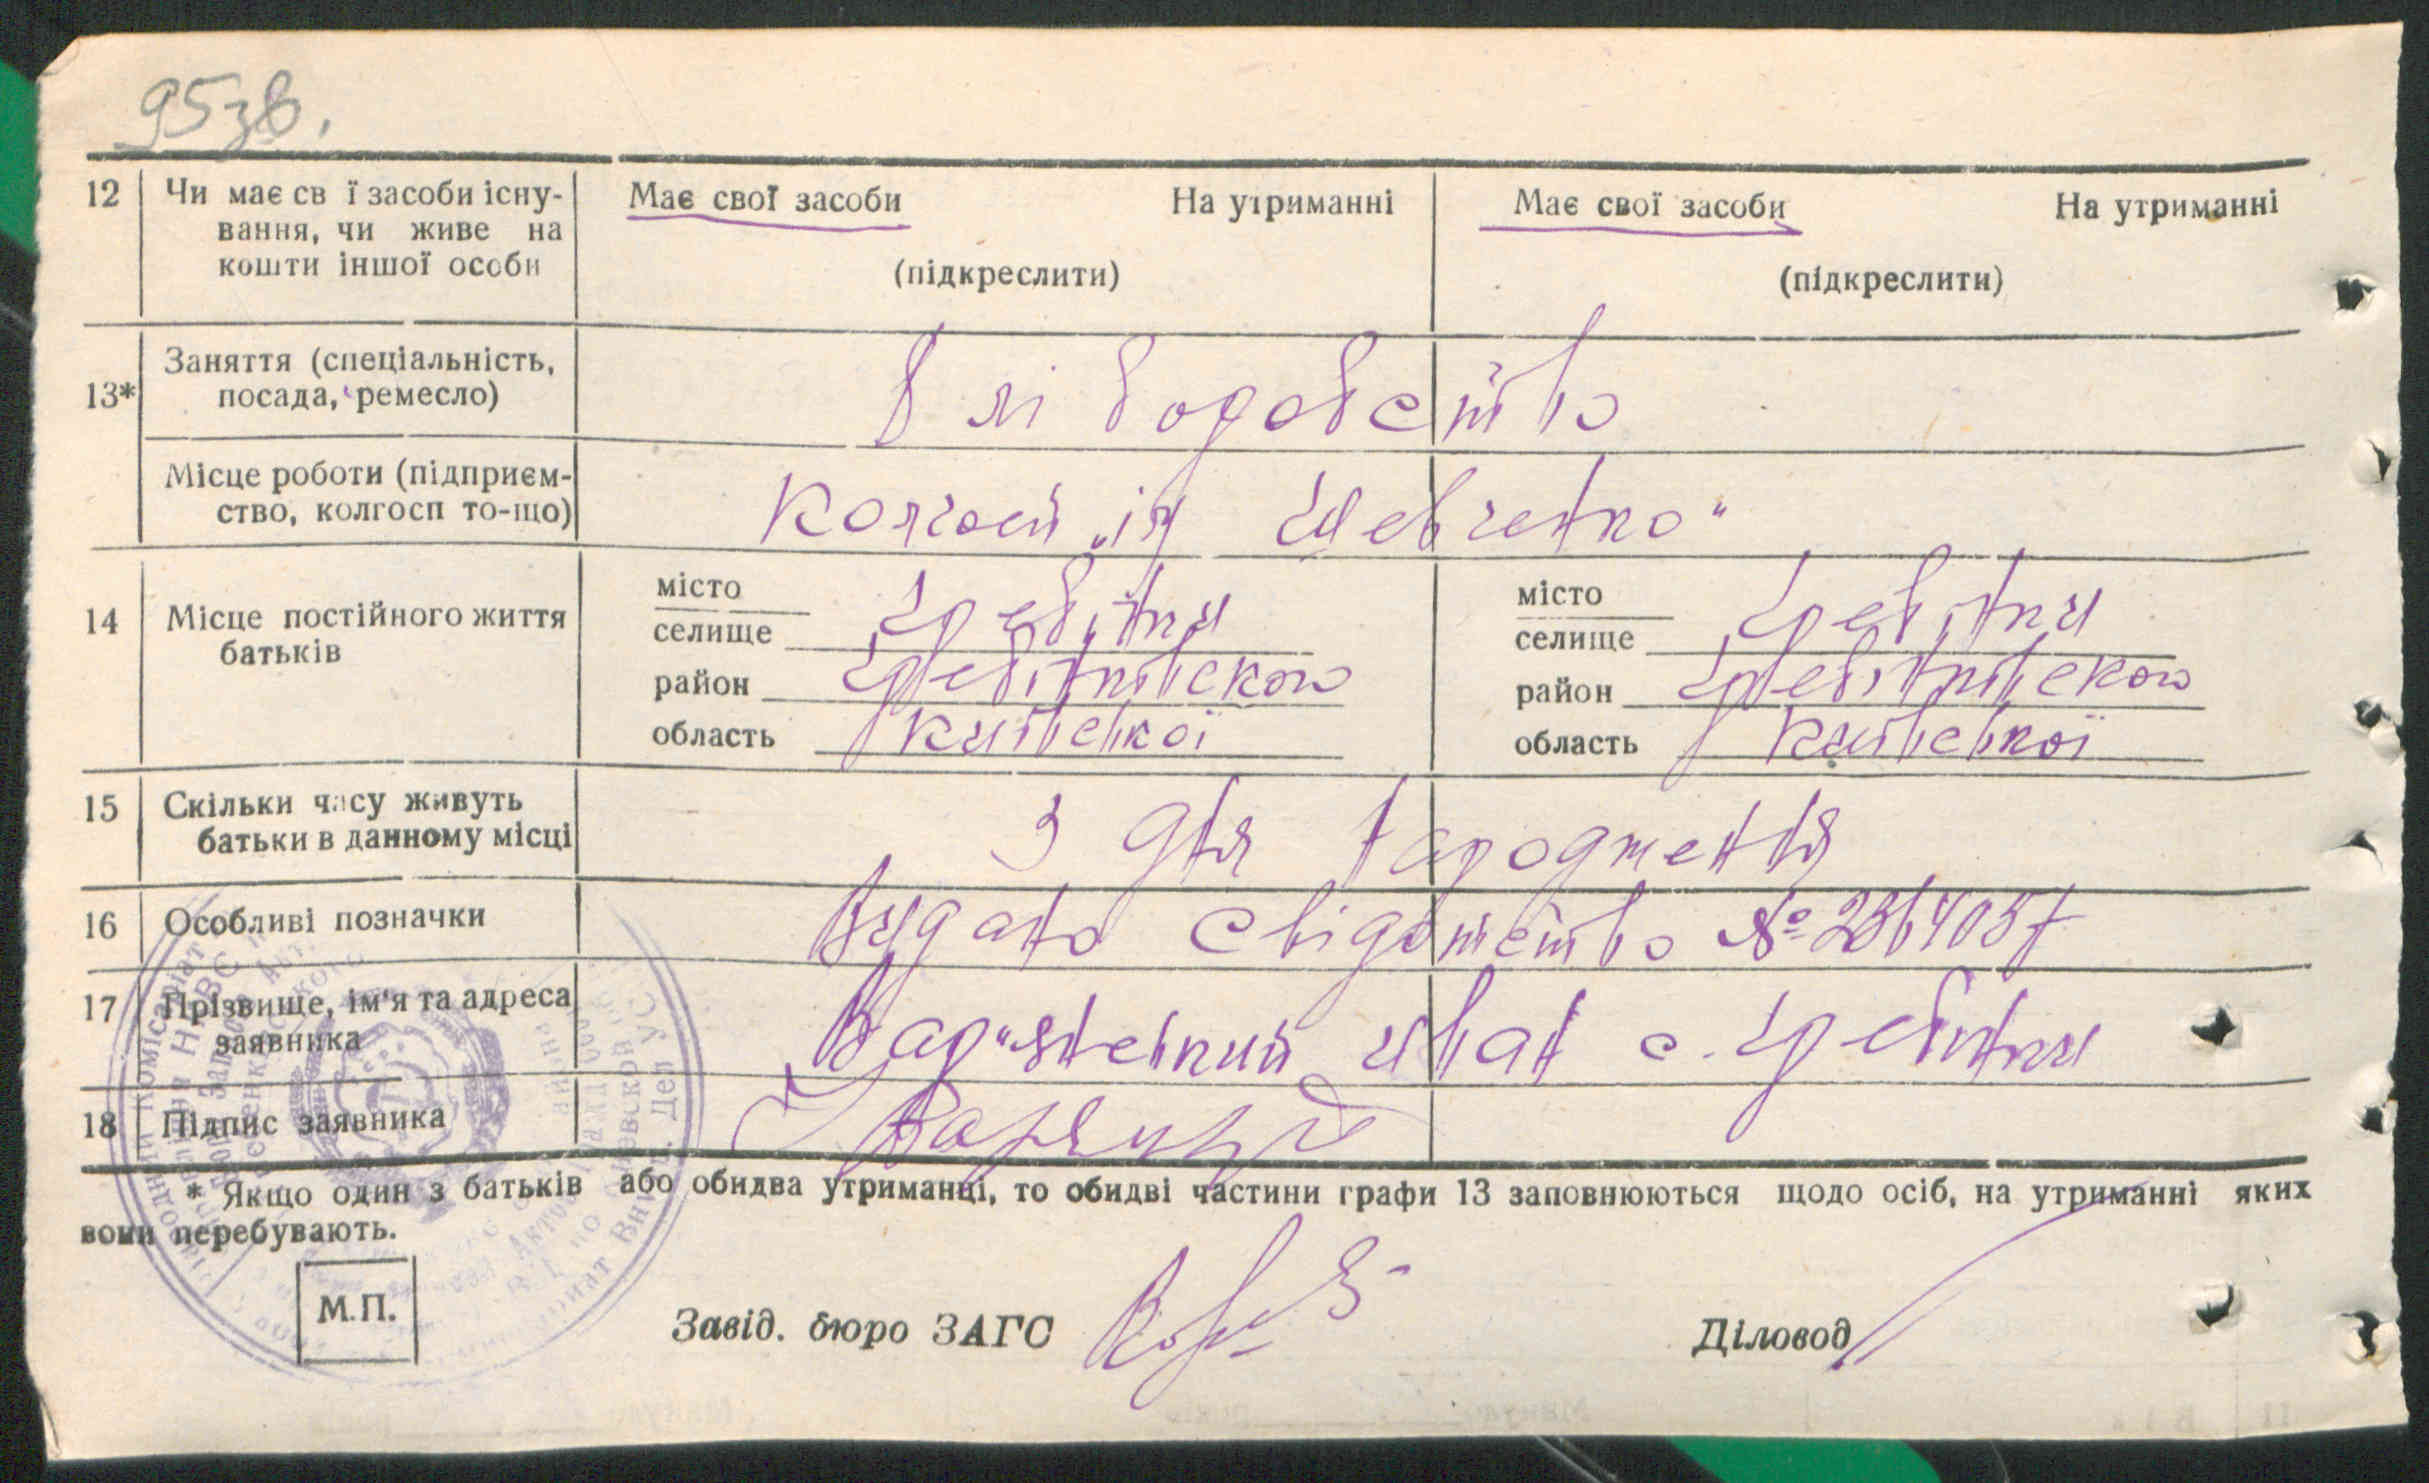 95 зв.
12 Чи має св ї засоби існу- Має свої засоби На утриманні Має свої засоби На утриманні
вання, чи живе на
кошти іншої особи (підкреслити) (підкреслити)
Заняття (спеціальність,
13* посада, ремесло)
Місце роботи (підприєм- колгосп „ім Шевченко"
ство, колгосп то-що)
місто місто
14 Місце постійного життя селище Гребінки селище Гребінки
батьків район Гребінківского район Гребінківского
область Київської область Київської
15 Скільки часу живуть З дня народження
батьки в данному місці
16 Особливі позначки Видано свідотство №
17 Прізвище, ім'я та адреса Іван с. Гребінки
заявника
18 Підпис заявника
* Якщо один з батьків або обидва утриманці, то обидві частини графи 13 заповнюються щодо осіб, на утриманні яких
вони перебувають.
М.П. Завід. бюро ЗАГС Діловод